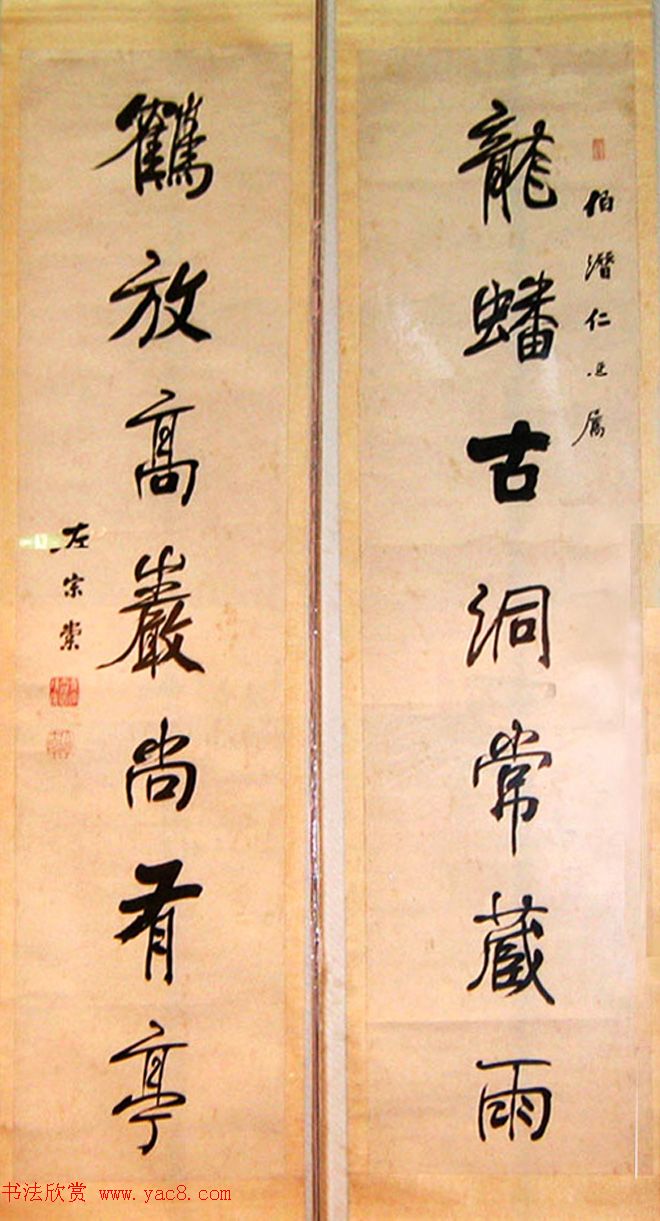 伯潛仁兄屬
龍蟠古洞常藏雨
鶴放高巖尚有亭
左宗棠
书法欣赏 www.yac8.com